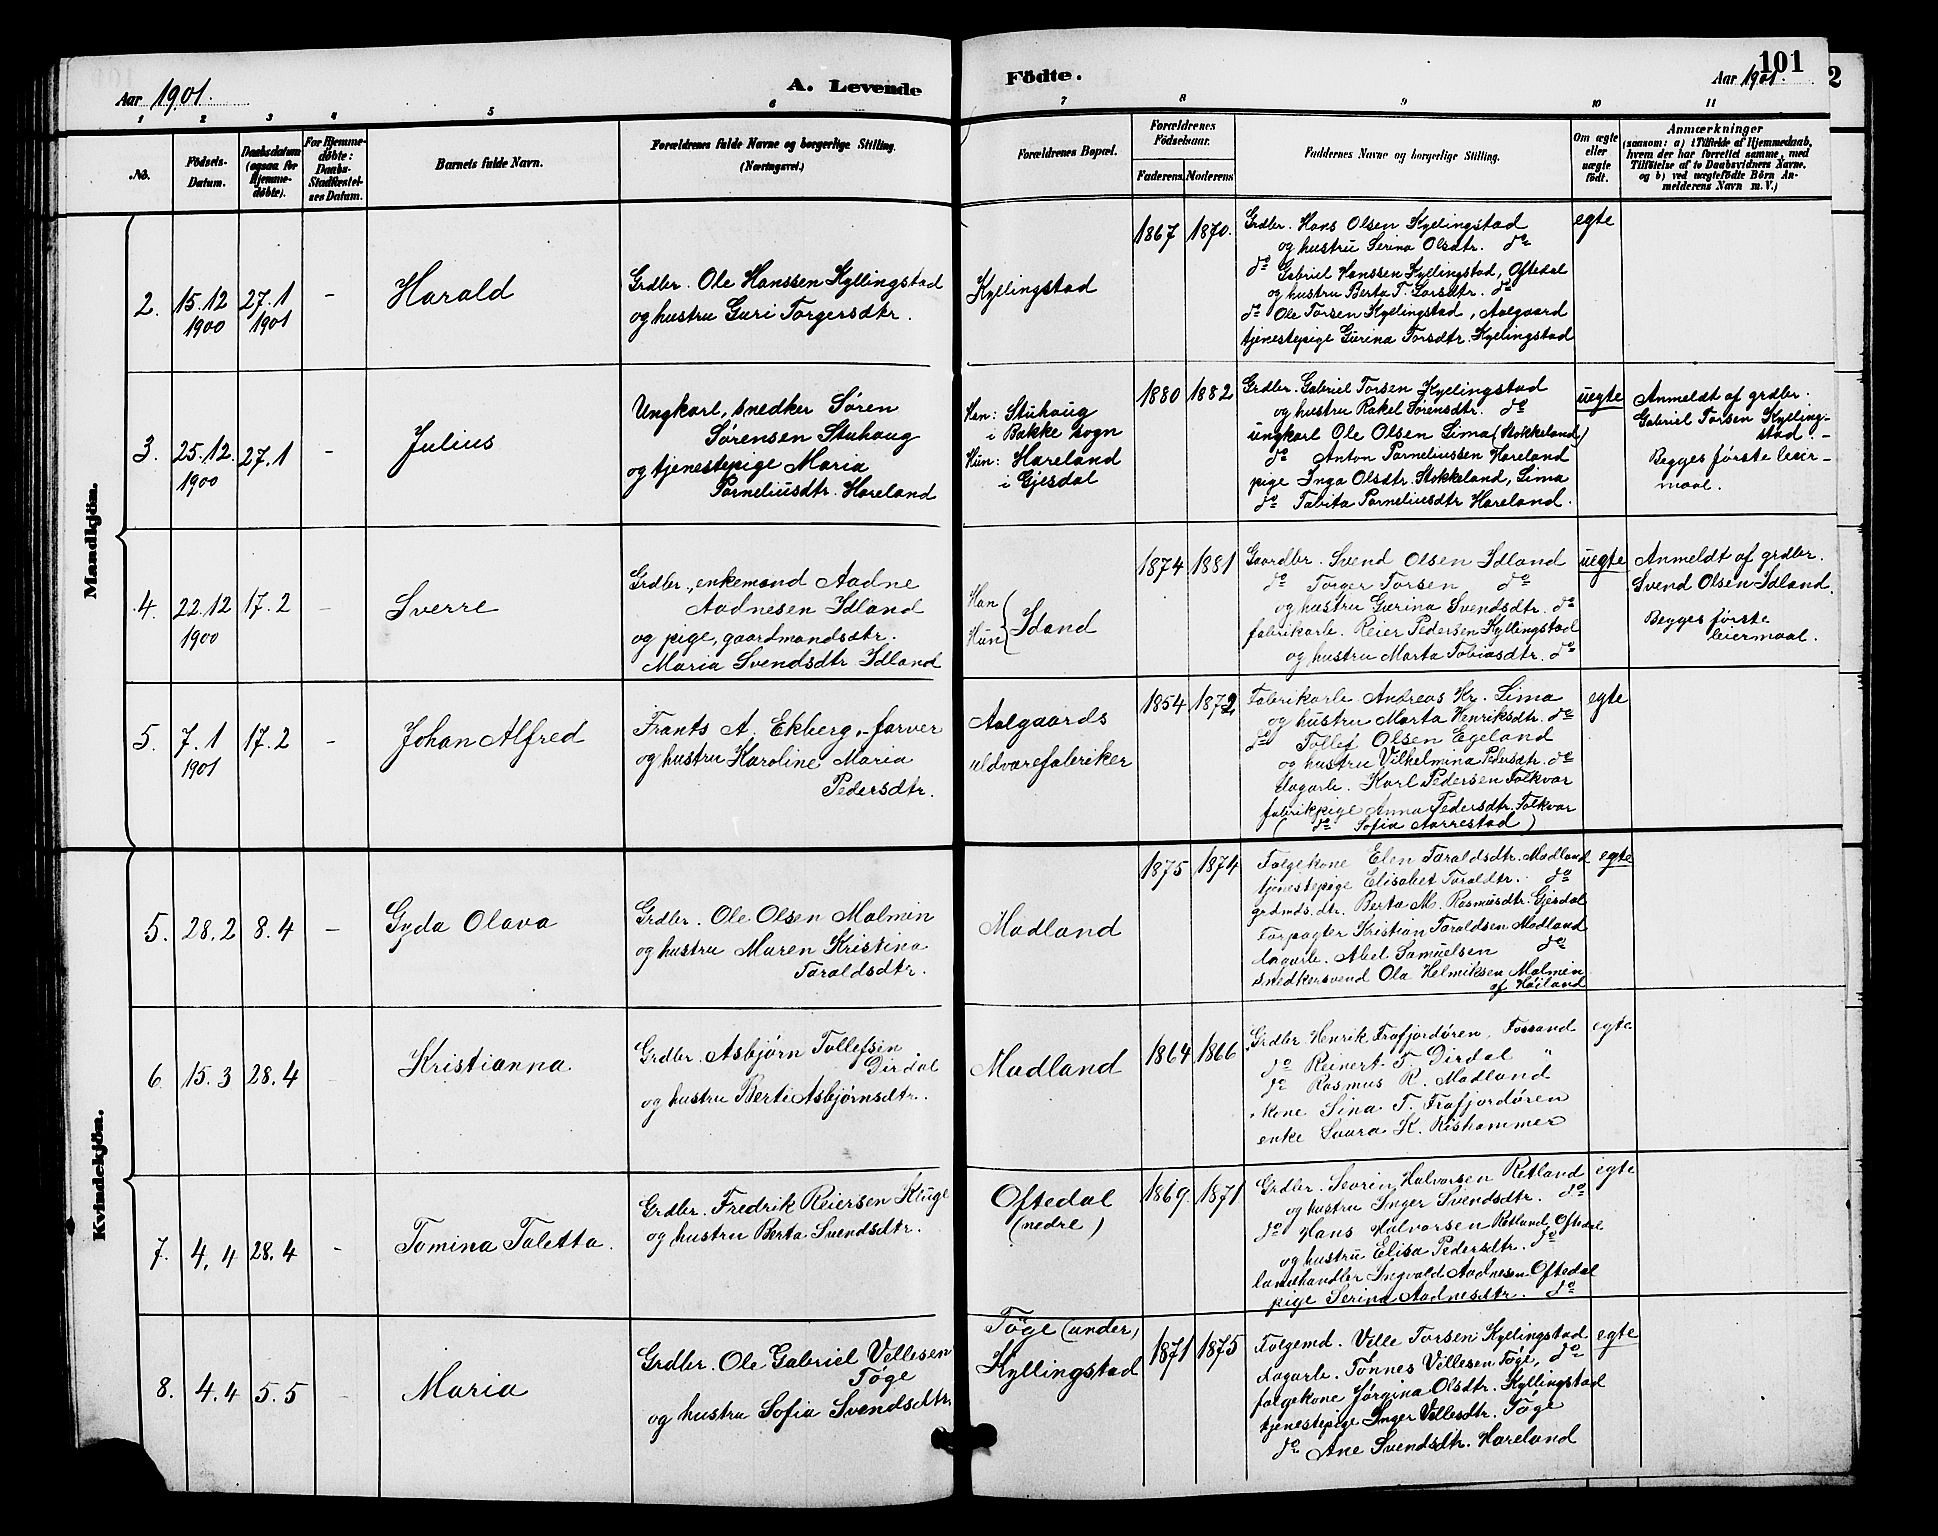 101
Aar 1901.
A. Levende
Födte.
Aar 1901.
2
1 2 3 4 5 6 7 8 9 10 11
No.
Födsels-
Datum.
Daabsdatum
(ogsaa for
Hjemme-
döbte).
For Hjemme-
døbte:
Daabs-
Stadfæstel-
ses Datum.
Barnets fulde Navn.
Forældrenes fulde Navne og borgerlige Stilling.
(Næringsvei.)
Forældrenes Bopæl.
Forældrenes
Födselsaar.
Faderens Moderens
Faddernes Navne og borgerlige Stilling.
Om ægte
eller
uægte
født.
Anmærkninger
(saasom: a) i Tilfælde af Hjemmedaab,
hvem der har forrettet samme, med
Tilföielse af to Daabsvidners Navne.
og b) ved uægtefödte Börn An-
melderens Navn m. V.)
Mandkjön.
2. 15.12
1900
27.1
1901
-
Harald
Grdbr. Ole Hanssen Kyllingstad
og hustru Guri Torgersdtr.
Kyllingstad
1867 1870.
Grdbr. Hans Olsen Kyllingstad
og hustru Serina Olsdtr. do
do Gabriel Hanssen Kyllingstad, Oftedal
og hustru Berta T. Larsdtr. do
do Ole Torsen Kyllingstad, Aalgaard
tjenestepige Gurina Torsdtr. Kyllingstad
egte
3. 25.12.
1900
27.1
-
Julius
Ungkarl, snedker Søren
Sørensen Stuhaug
og tjenestepige Maria
Porneliusdtr. Hareland
Han: Stuhaug
i Bakke sogn
Hun: Hareland
i Gjesdal
1880 1882
Grdbr. Gabriel Torsen Kyllingstad
og hustru Rakel Sørensdtr. do
ungkarl Ole Olsen Lima (Stokkeland)
do Anton Porneliussen Hareland
pige Inga Olsdtr. Stokkeland, Lima
do Tabita Porneliusdtr Hareland.
uegte
Anmeldt af grdbr.
Gabriel Torsen Kylling-
stad. -
Begges første leier-
maal.
4. 22.12
1900
17.2
-
Sverre
Grdbr., enkemand Aadne
Aadnesen Idland
og pige, gaardmandsdtr.
Maria Svendsdtr Idland
Han
Hun
Idand
1874 1881
Gaardbr. Svend Olsen Idland
do Torger Torsen do
og hustru Gurina Svendsdtr. do
fabrikarb. Reier Pedersen Kyllingstad
og hustru Marta Tobiasdtr. do
uegte
Anmeldt af grdbr.
Svend Olsen Idland.
Begges første
leiermaal.
5. 7.1
1901
17.2
-
Johan Alfred
Frants A. Ekberg, farver
og hustru Karoline Maria
Pedersdtr.
Aalgaards
uldvarefabriker
1854 1872
Fabrikarb. Andreas Kr. Lima
og hustru Marta Henriksdtr. do
do Tollef Olsen Egeland
og hustru Vilhelmina Pedersdtr. do
dagarb. Karl Pedersen Folkvar
fabrikpige Anna Pedersdtr. Folkvar
( do Sofia Aarrestad )
egte
Kvindekjön.
5. 28.2 8.4 -
Gyda Olava
Grdbr. Ole Olsen Malmin
og hustru Maren Kristina
Taraldsdtr.
Madland
1875 1874
Folgekone Elen Taraldsdtr. Madland
tjenestepige Elisabet Taraldtr. do
grdmds.dtr. Berta M. Rasmusdtr. Gjesdal
Forpagter Kristian Taraldsen Madland
dagarb. Abel Samuelsen do
snedkersvend Ola Helmiksen Malmin
af Høiland
egte
6. 15.3 28.4 -
Kristianna.
Grdbr. Asbjørn Tollefsen
Dirdal
og hustru Berte Asbjørnsdtr.
Madland
1864 1866
Grdbr Henrik Frafjordøren, Fossand
do Reinert T. Dirdal "
do Rasmus R. Madland
kone Sina T. Frafjordøren
enke K. Rishammer
egte
7. 4.4 28.4 -
Tomina Taletta.
Grdbr. Fredrik Reiersen Kluge
og hustru Berta Svendsdtr.
Oftedal
(nedre)
1869. 1871
Grdbr. Severin Halvorsen Retland
og hustru Inger Svendsdtr. do
do Hans Halvorsen Retland, Oftedal
og hustru Elisa Pedersdtr. do
landhandler Ingvald Aadnesen Oftedal
pige Serina Aadnesdtr. do
egte
8. 4.4 5.5 -
Maria
Grdbr. Ole Gabriel Vellesen
Tøge
og hustru Sofia Svendsdtr.
Tøge (under)
Kyllingstad
1871 1875
Folgemd. Velle Torsen Kyllingstad
dagarb. Tønnes Vellesen Tøge, do
folgekone Jørgina Olsdtr. Kyllingstad
tjenestepige Inger Vellesdtr. Tøge
do Ane Svendsdtr. Hareland
egte